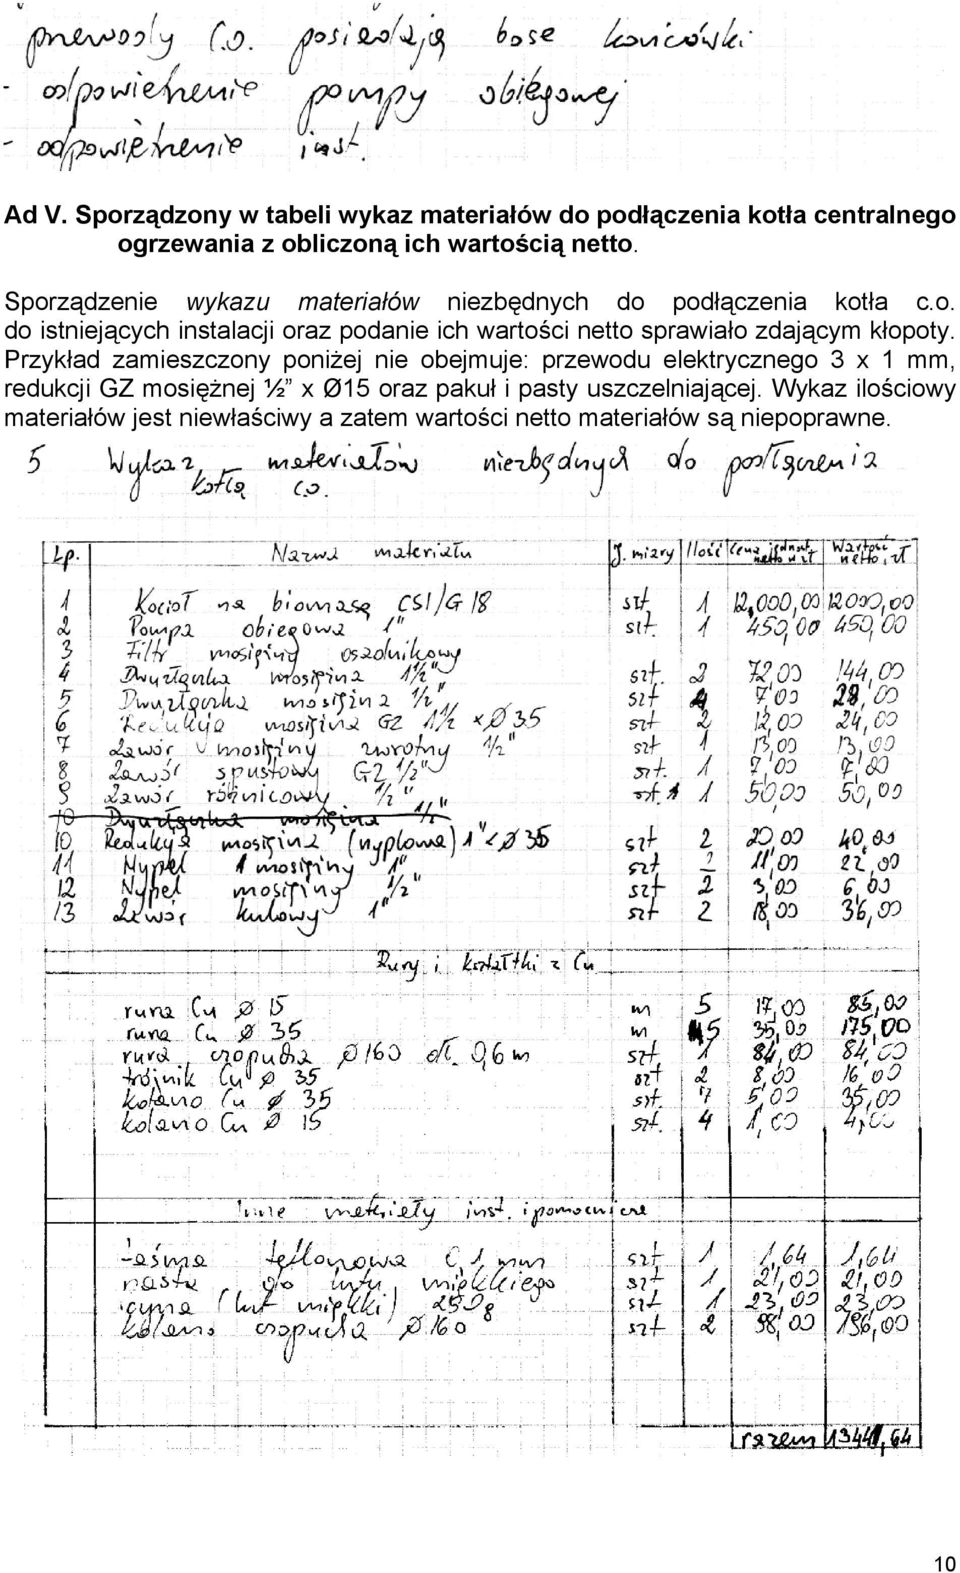 przewody c.o. posiadają bose końcówki
- odpowietrzenie pompy obiegowej
- odpowietrzenie inst.
Ad V. Sporządzony w tabeli wykaz materiałów do podłączenia kotła centralnego
ogrzewania z obliczoną ich wartością netto.
Sporządzenie wykazu materiałów niezbędnych do podłączenia kotła c.o.
do istniejących instalacji oraz podanie ich wartości netto sprawiało zdającym kłopoty.
Przykład zamieszczony poniżej nie obejmuje: przewodu elektrycznego 3 x 1 mm,
redukcji GZ mosiężnej ½” x Ø15 oraz pakuł i pasty uszczelniającej. Wykaz ilościowy
materiałów jest niewłaściwy a zatem wartości netto materiałów są niepoprawne.
5 Wykaz materiałów niezbędnych do podłączenia
kotła c.o.
Lp. Nazwa materiału J. miary Ilość Cena jednost. netto w zł Wartość netto, zł
1 Kocioł na biomasę CSI/G 18 szt 1 12,000,00 12000,00
2 Pompa obiegowa 1" szt. 1 450,00 450,00
3 Filtr mosiężny osadnikowy
4 Dwuzłączka mosiężna 1½" szt. 2 72,00 144,00
5 Dwuzłączka mosiężna ½" szt 4 7,00 28,00
6 Redukcja mosiężna GZ 1½ x Ø35 szt 2 12,00 24,00
7 Zawór mosiężny zwrotny ½" szt 1 13,00 13,00
8 Zawór spustowy GZ ½" szt. 1 7,00 7,00
9 Zawór różnicowy ½" szt. 1 50,00 50,00
10 Dwuzłączka mosiężna ½"
10 Redukcja mosiężna (nyplowa) 1" x Ø35 szt 2 20,00 40,00
11 Nypel mosiężny 1" szt 2 11,00 22,00
12 Nypel mosiężny ½" szt 2 3,00 6,00
13 Zawór kulowy 1" szt 2 18,00 36,00
Rury i kształtki z Cu
rura Cu Ø 15 m 5 17,00 85,00
rura Cu Ø 35 m 5 35,00 175,00
rura czopucha Ø160 dł. 0,6m szt. 1 84,00 84,00
trójnik Cu Ø 35 szt 2 8,00 16,00
kolano Cu Ø 35 szt. 7 5,00 35,00
kolano Cu Ø 15 szt. 4 1,00 4,00
Inne materiały inst. i pomocnicze
taśma teflonowa 0,1 mm szt 1 1,64 1,64
pasta do lutu miękkiego szt 1 21,00 21,00
cyna (lut miękki) 250g szt 1 23,00 23,00
kolano czopucha Ø160 szt 2 98,00 196,00
razem 13441,64
10